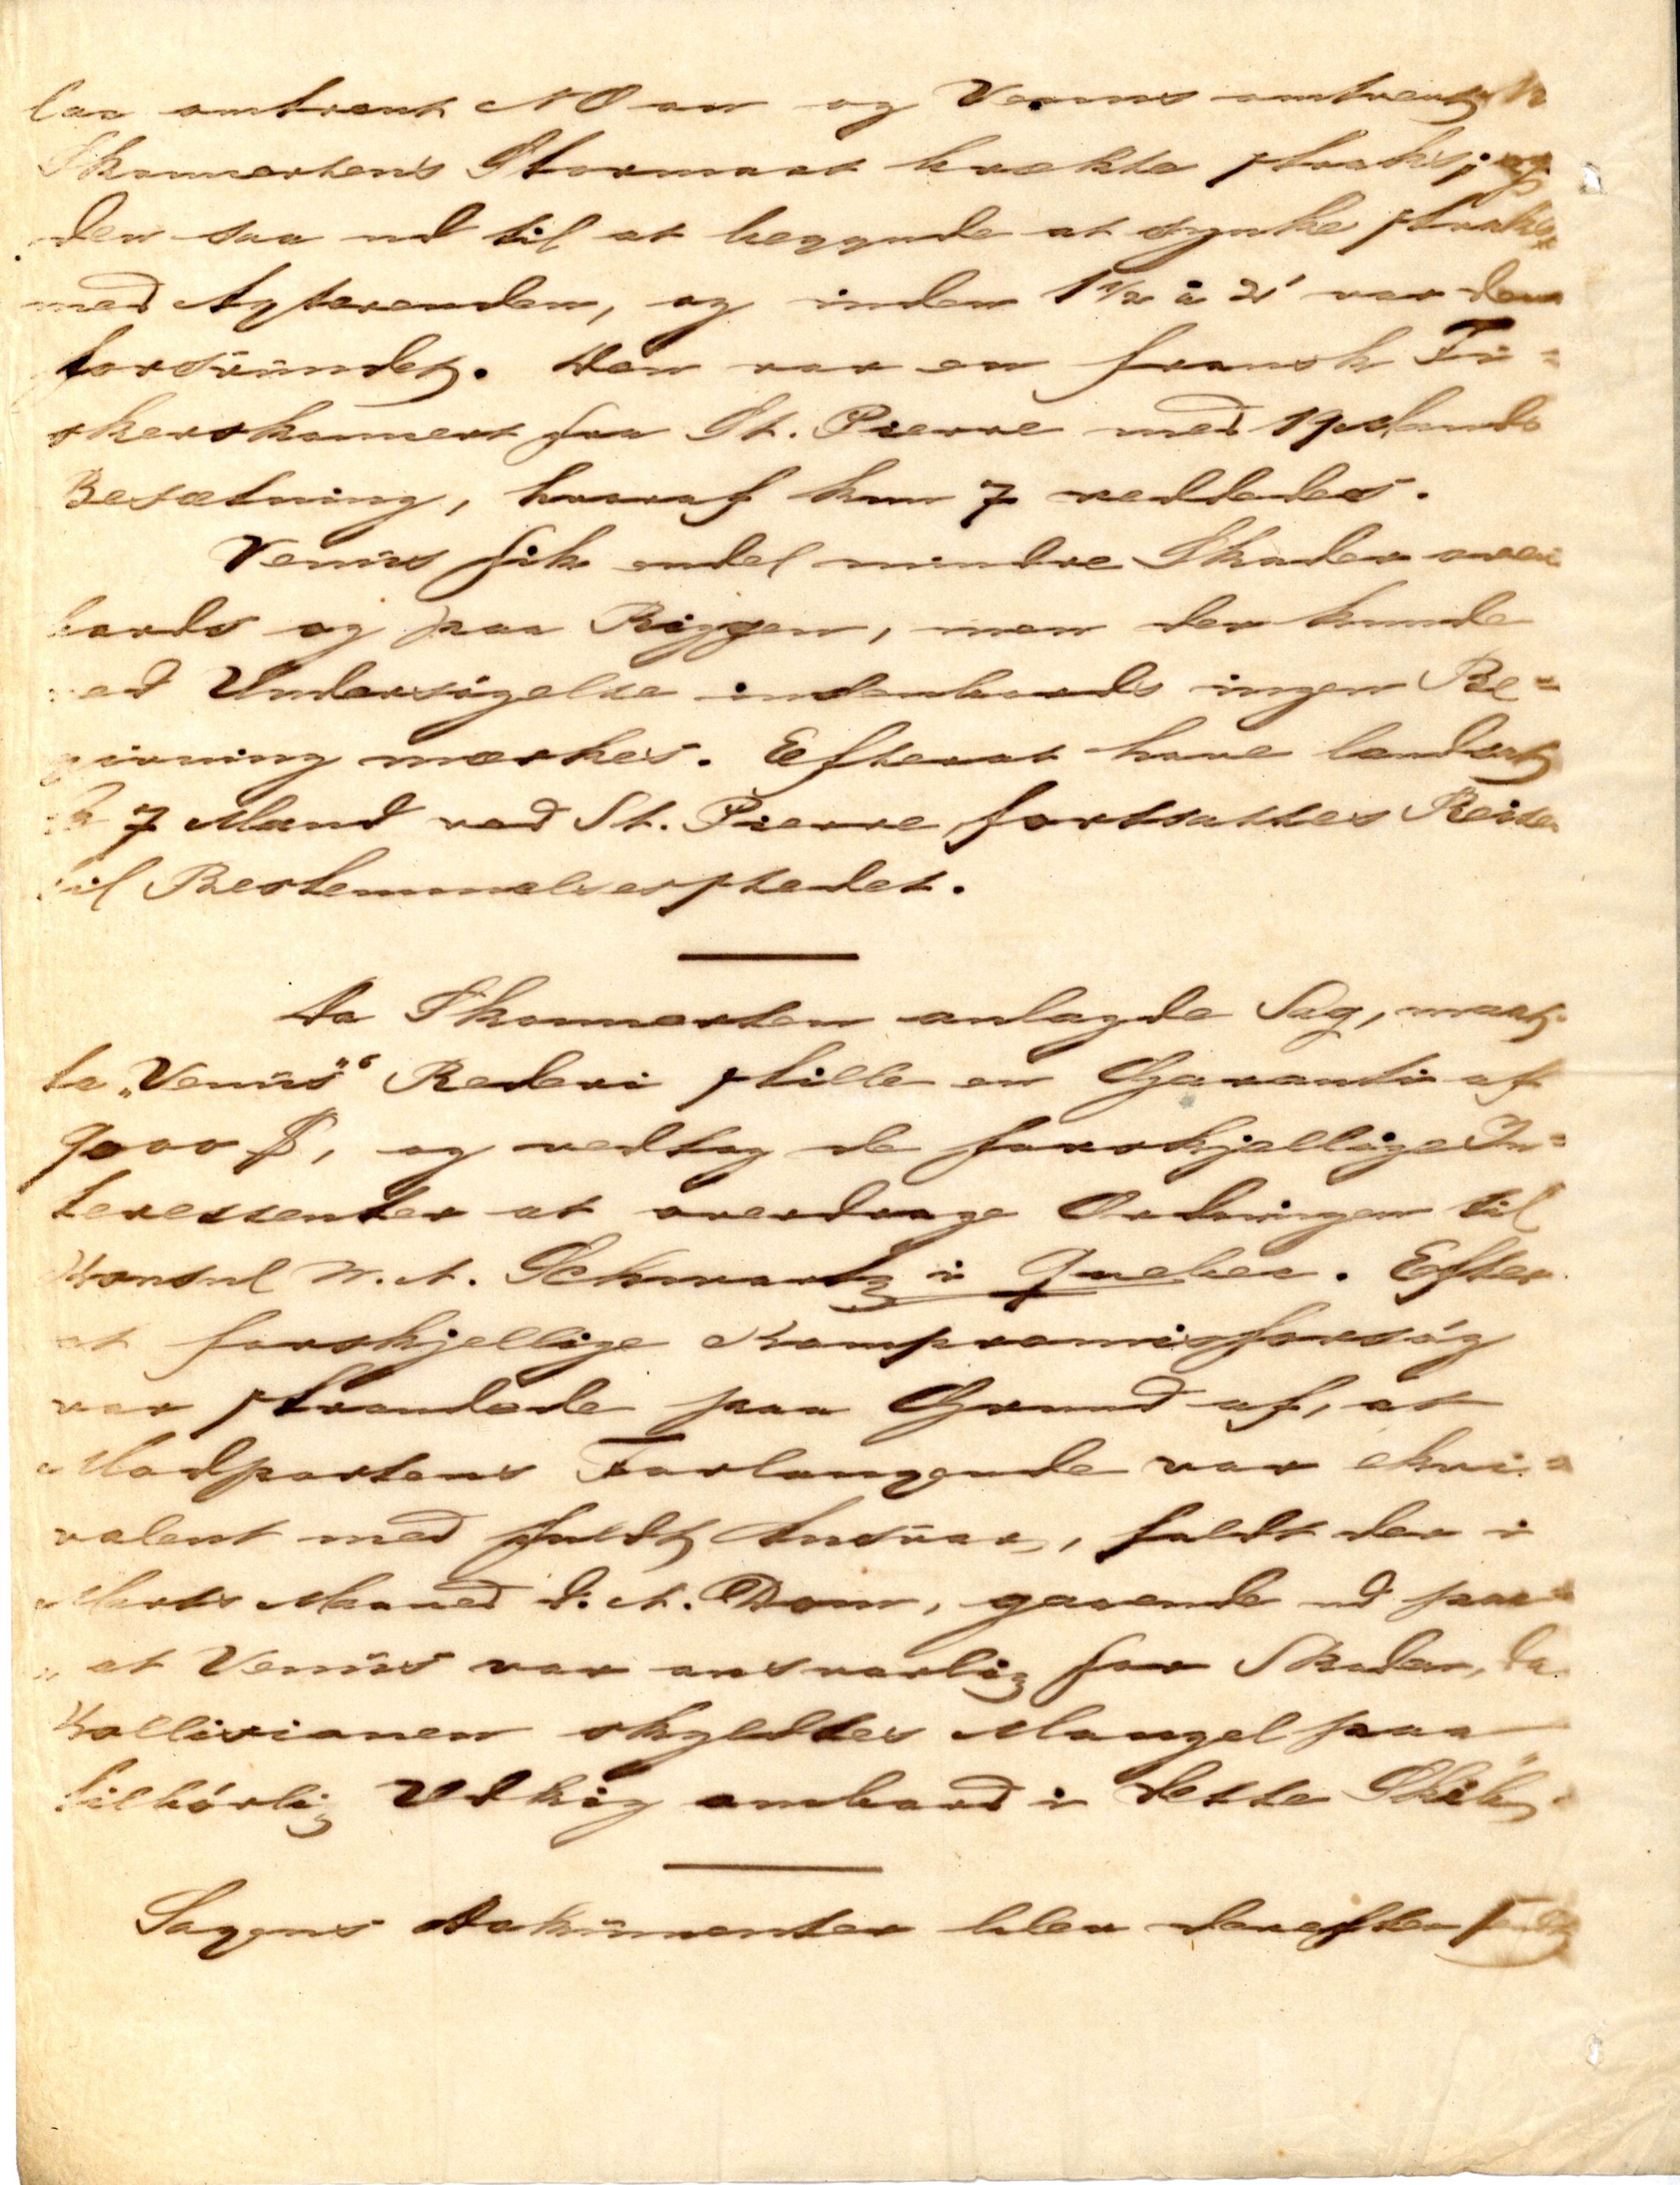 laa omtrent NO an og Venus omtrent N
Skonnertens Stormast brækte straks; og
den saa ud til at begynde at synke straks
med Agterenden, og inden 1½ à 2' var den
forsvundet. Den var en fransk Fi=
skerskonnert fra St. Pierre med 19 Mands
Besætning, hvoraf kun 7 reddedes.
Venus fik endel mindre Skader oven
bords og paa Riggen, men der kunde
ved Undersøgelse indenbords ingen Be=
givning mærkes. Efterat have landsat
de 7 Mand ved St. Pierre fortsattes Reisen
til Bestemmelsesstedet.
Da Skonnerten anlagde Sag, maat
te „Venus"' Rederi stille en Garanti af
9000 $, og vedtog de forskjellige In=
teressenter at overdrage Ordningen til
Konsul W. A. Schwartz i Quebec. Efter
at forskjellige Kompromisforsøg
var strandede paa Grund af, at
Modpartens Forlangende var ekvi=
valent med fuldt Ansvar, faldt der i
Marts Maaned d. A. Dom, gaaende ud paa
„ at Venus var ansvarlig for Skaden, da
Kollisionen skyldtes Mangel paa
tilbørlig Udkig ombord i dette Skib".
Sagens Dokumenter blev derefter sendt